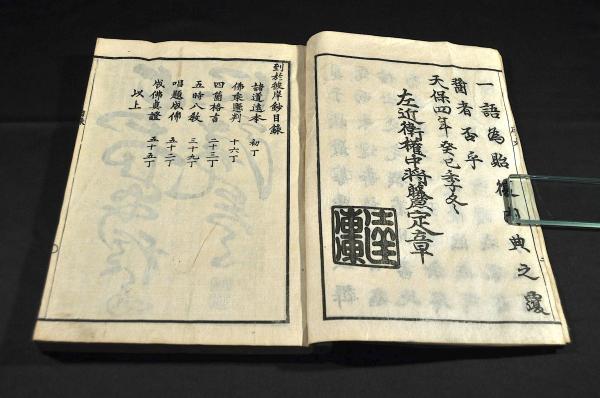 一語為昭典之
者否乎
天保四年癸巳季冬
左近衛權中將藤定章
到於彼岸鈔目錄
諸道遠本 初丁
佛乘懸判 十六丁
四箇格言 二十三丁
五時八教 三十九丁
唱題成佛 五十二丁
成佛真證 五十五丁
以上